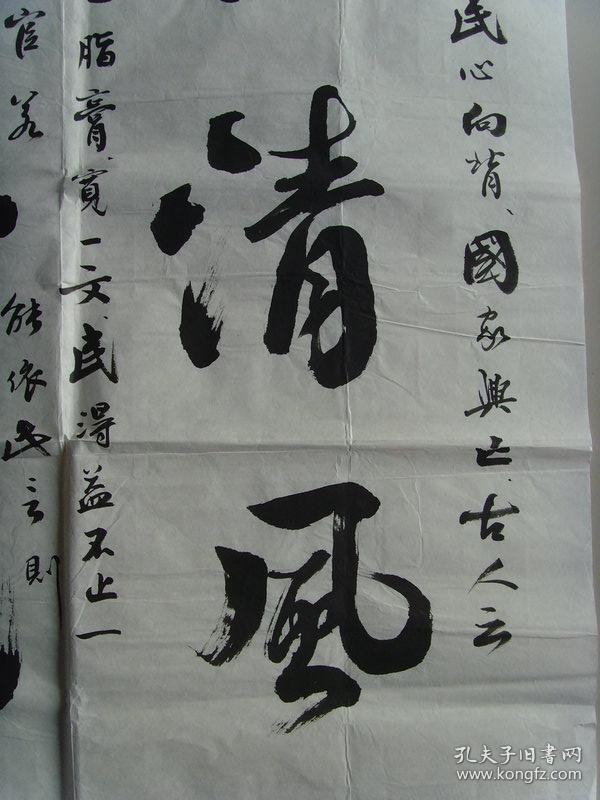 民心向背、國家興亡、古人云
清風
脂膏、寬一文、民得益不止一
官若
能依民言則
孔夫子旧書网
www.kongfz.com